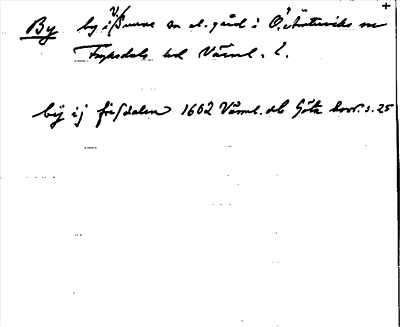 By by i V. Sunne sn el. gård i Ö. Ämterviks sn
Fryksdals hd Värml. l.
bÿ ij frisdalen 1662 Värml. db Göta hovr. s. 25